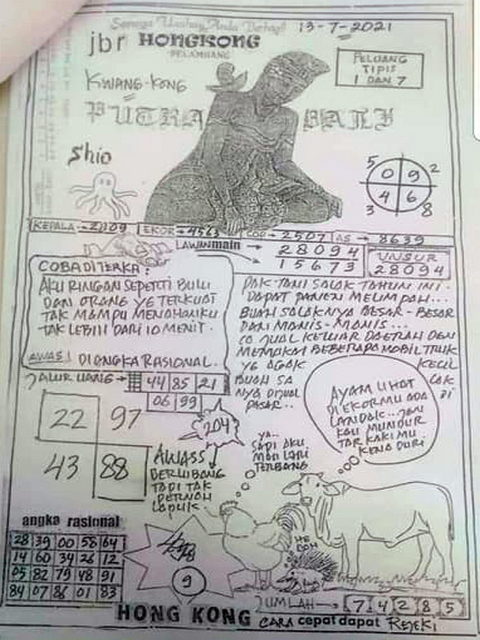 Semoga Usahay Anda Berhasil
13-7-2021
jbr HONGKONG
PELAMBANG
PELUANG
TIPIS
1 DAN 7
KWANG-KONG
PUTRA BALI
Shio
5 2
0 9
4 6
3 8
KEPALA → 2709 EKOR → 4563 COP → 2507 AS → 8639
LAWAN main → 28094
15673
UNSUR
28094
COBA DITERKA:
AKU RINGAN SEPERTI BULU
DAN ORANG YG TERKUAT
TAK MAMPU MENAHANKU
TAK LEBIH DARI 10 MENIT.
AWAS! DIANGKA RASIONAL.
PAK TANI SALAK TAHUN INI.
DAPAT PANEN MELIMPAH...
BUAH SALAKNYA BESAR-BESAR
DAN MANIS-MANIS....
CO JUAL KELUAR DAERAH DEN
MEMAKAI BEBERAPA MOBIL TRUK
YG AGAK KECIL
BUAH SA LAK
NYA DIJUAL DI
PASAR..
JALUR UANG → 44 85 21
06 99
204
22 97
43 88
AYAM LIHAT
DI EKORMU ADA
LANDAK...JANI
KAU MUNDUR
TAR KAKIMU
KENA DURI
YA...
SAPI AKU
MAU LARI
TERBANG
AWASS
BERLUBANG
TAPI TAK
PERNAH
angka rasional
28 39 00 58 64
14 60 34 26 12
05 82 79 48 91
84 07 86 01 83
9
JUMLAH → 7 4 2 8 5
HONG KONG CARA cepat dapat REJEKI